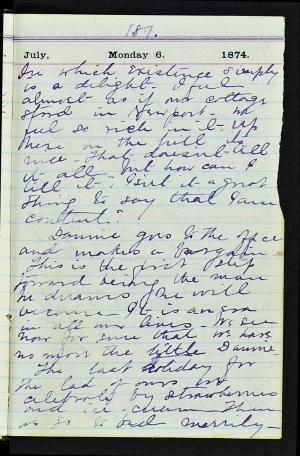 187.
July, Monday 6. 1874.
In which existence simply
is a delight. I feel
almost as if our cottage
stood in Newport - we
feel so rich in it - up
here on the hill. It
nice - that doesn't tell
it all - but how can I
tell it? Isn't it a great
thing to say that I am
content?
Dannie goes to the office
and makes a
This is the first step
toward being the man
he dreams he will
become. It is an era
in all our lives - We see
now for sure that we have
no more the little Dannie
The last holiday for
the lad of ours we
celebrate by strawberries
and ice-cream. Then
so to bed merrily -